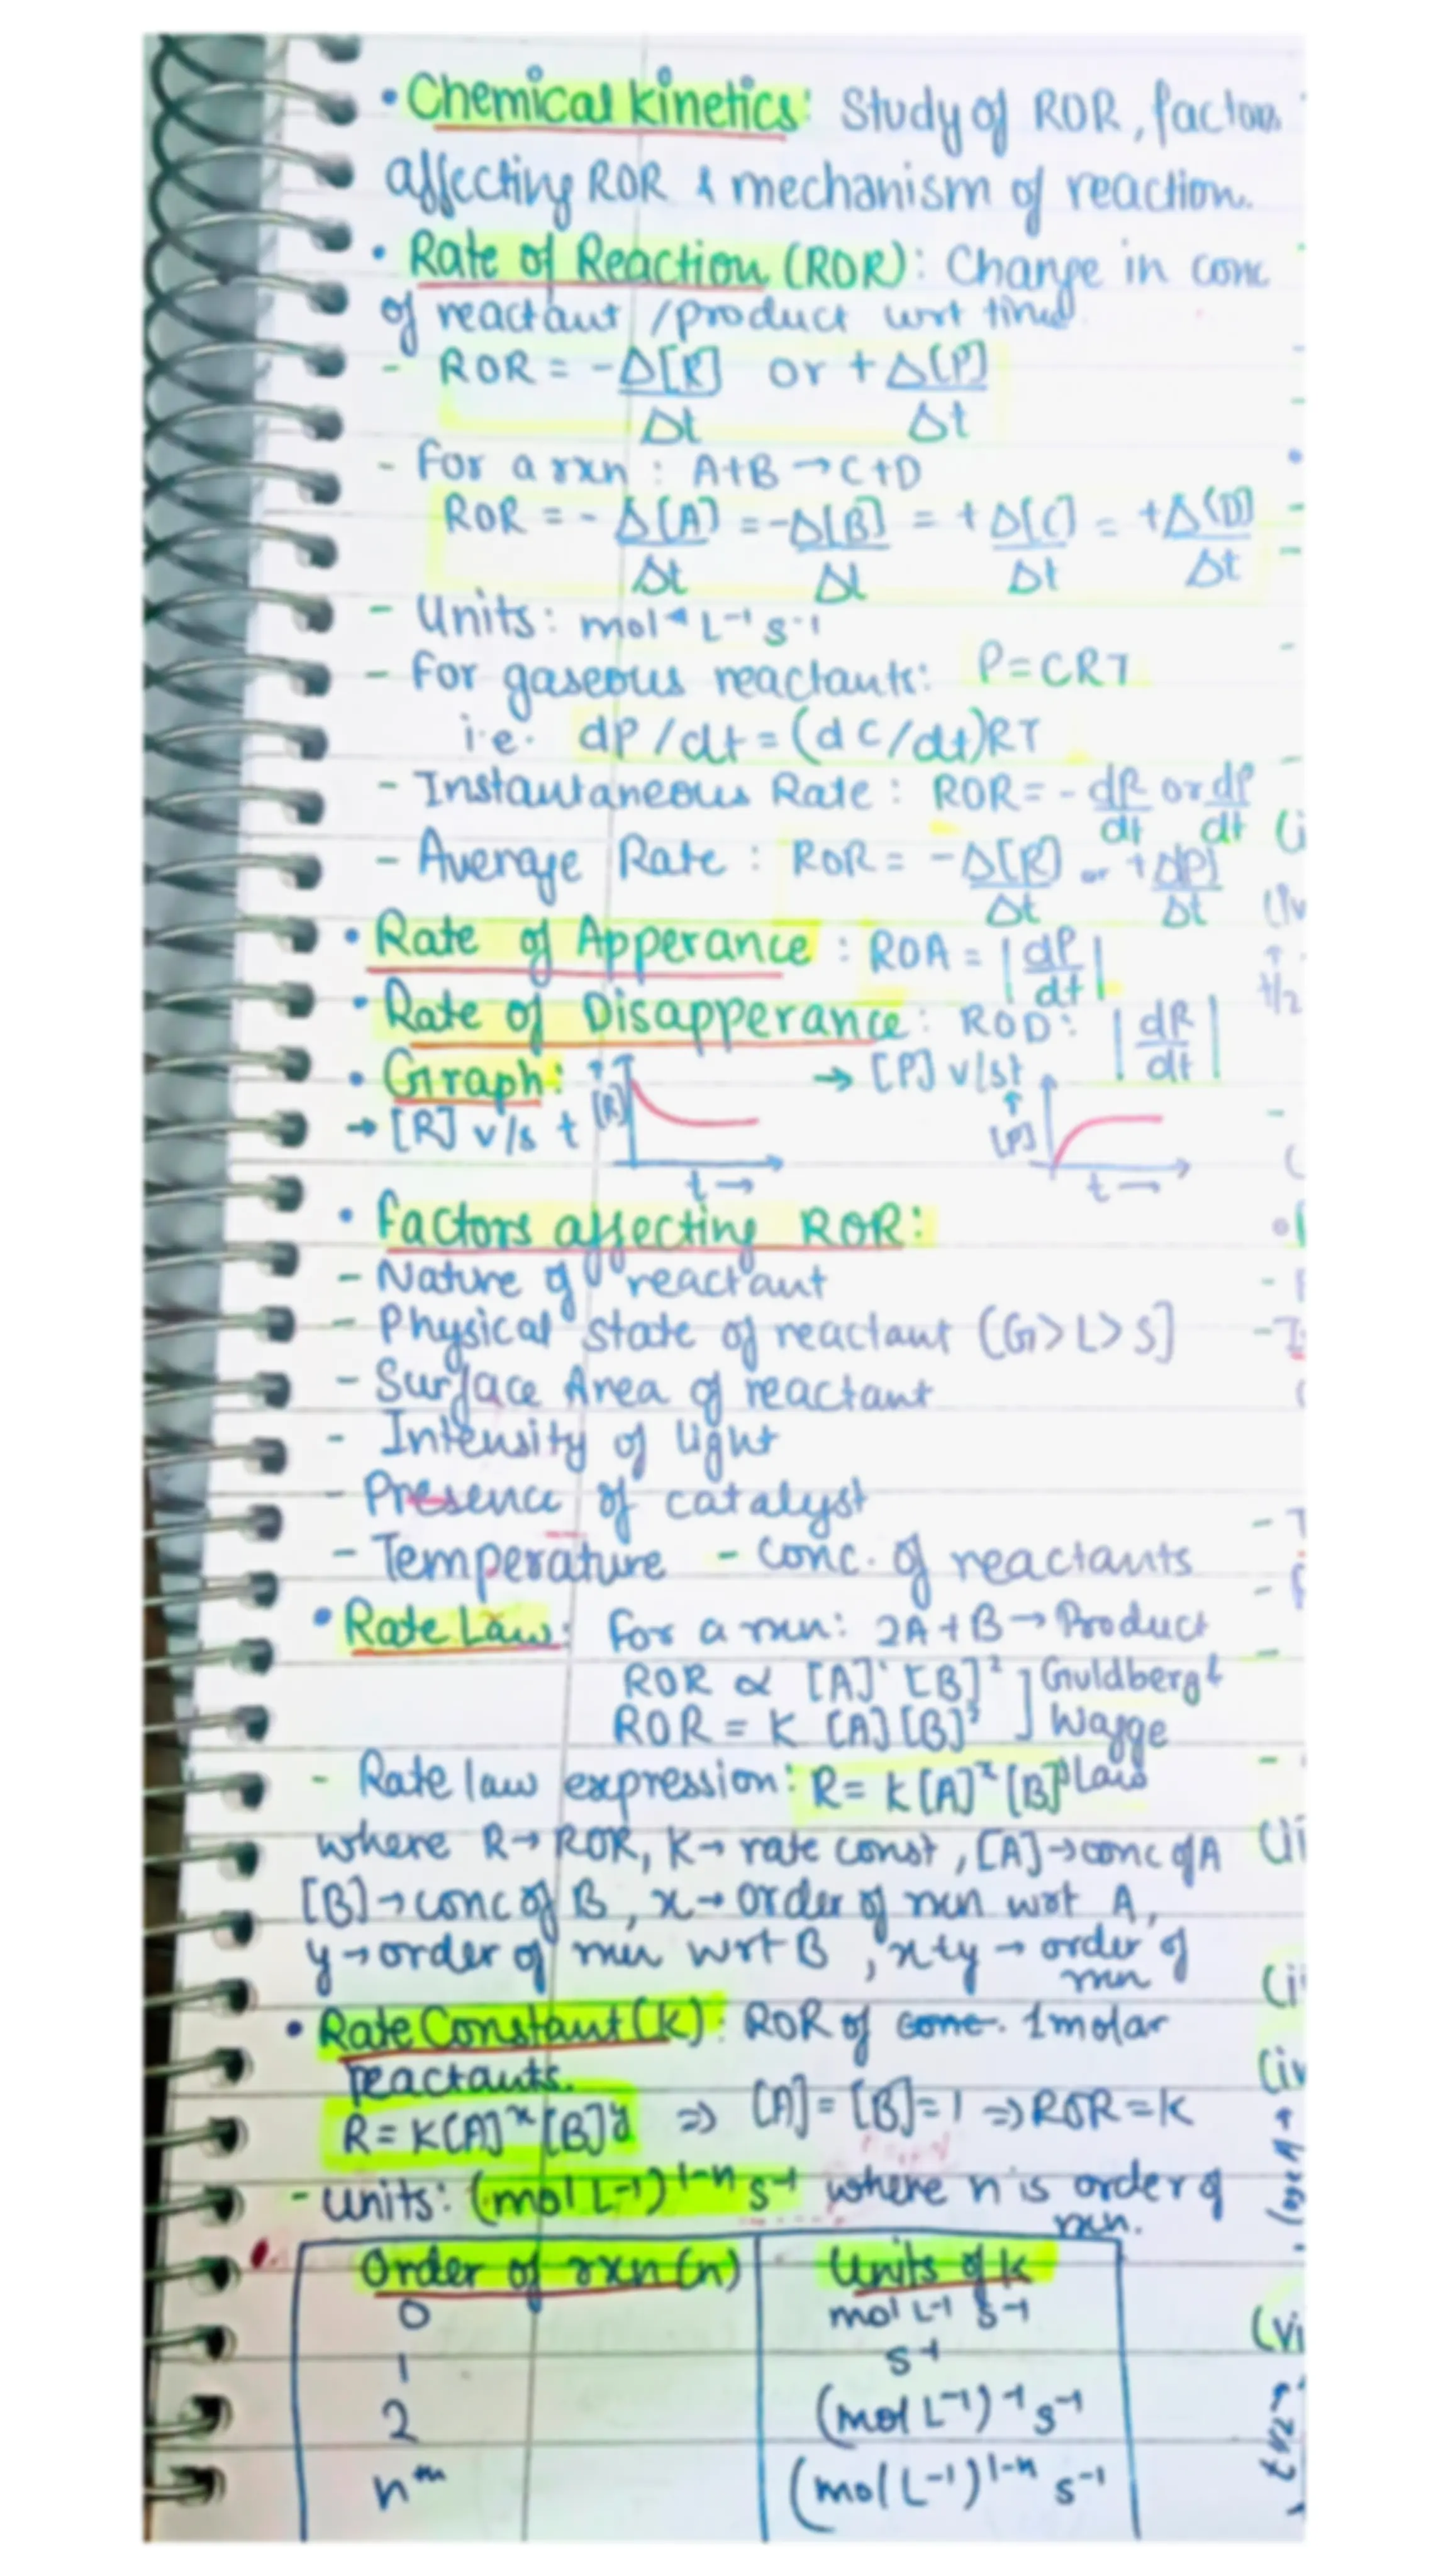 • Chemical kinetics: Study of ROR, factors
affecting ROR & mechanism of reaction.
• Rate of Reaction (ROR): Change in conc
of reactant /product wrt time
- ROR = -Δ[R]/Δt or +Δ[P]/Δt
- For a rxn : A+B → C+D
ROR = -Δ[A]/Δt = -Δ[B]/Δt = +Δ[C]/Δt = +Δ[D]/Δt
- Units: mol L⁻¹ s⁻¹
- For gaseous reactants: P=CRT
i.e. dP/dt = (dC/dt)RT
- Instantaneous Rate: ROR= -dR/dt or dP/dt
- Average Rate : ROR = -Δ[R]/Δt or +d[P]/Δt
• Rate of Apperance : ROA = |dP/dt|
• Rate of Disapperance: ROD: |dR/dt|
• Graph: → [P] v/s t
→ [R] v/s t
[R]
t →
[P]
t →
• Factors affecting ROR:
- Nature of reactant
- Physical state of reactant (G> L> S]
- Surface Area of reactant
- Intensity of light
- Presence of catalyst
- Temperature - conc. of reactants
• Rate Law: For a rxn: 2A+B → Product
ROR ∝ [A]¹ [B]² ] Guldberg &
ROR = K [A][B] ] Wagge
- Rate law expression: R= K[A]ˣ [B]ʸ Law
where R→ ROR, K→ rate const, [A]→conc of A
[B]→conc of B, x→ order of rxn wrt A,
y→order of rxn wrt B, x+y → order of
rxn
• Rate Constant (k): ROR of conc. 1molar
reactants.
R= K[A]ˣ [B]ʸ ⇒ [A]= [B]=1 ⇒ ROR=K
- units: (mol L⁻¹)¹⁻ⁿ s⁻¹ where n is order of
rxn.
Order of rxn (n) Units of k
0 mol L⁻¹ s⁻¹
1 s⁻¹
2 (mol L⁻¹)⁻¹ s⁻¹
nᵗʰ (mol L⁻¹)¹⁻ⁿ s⁻¹